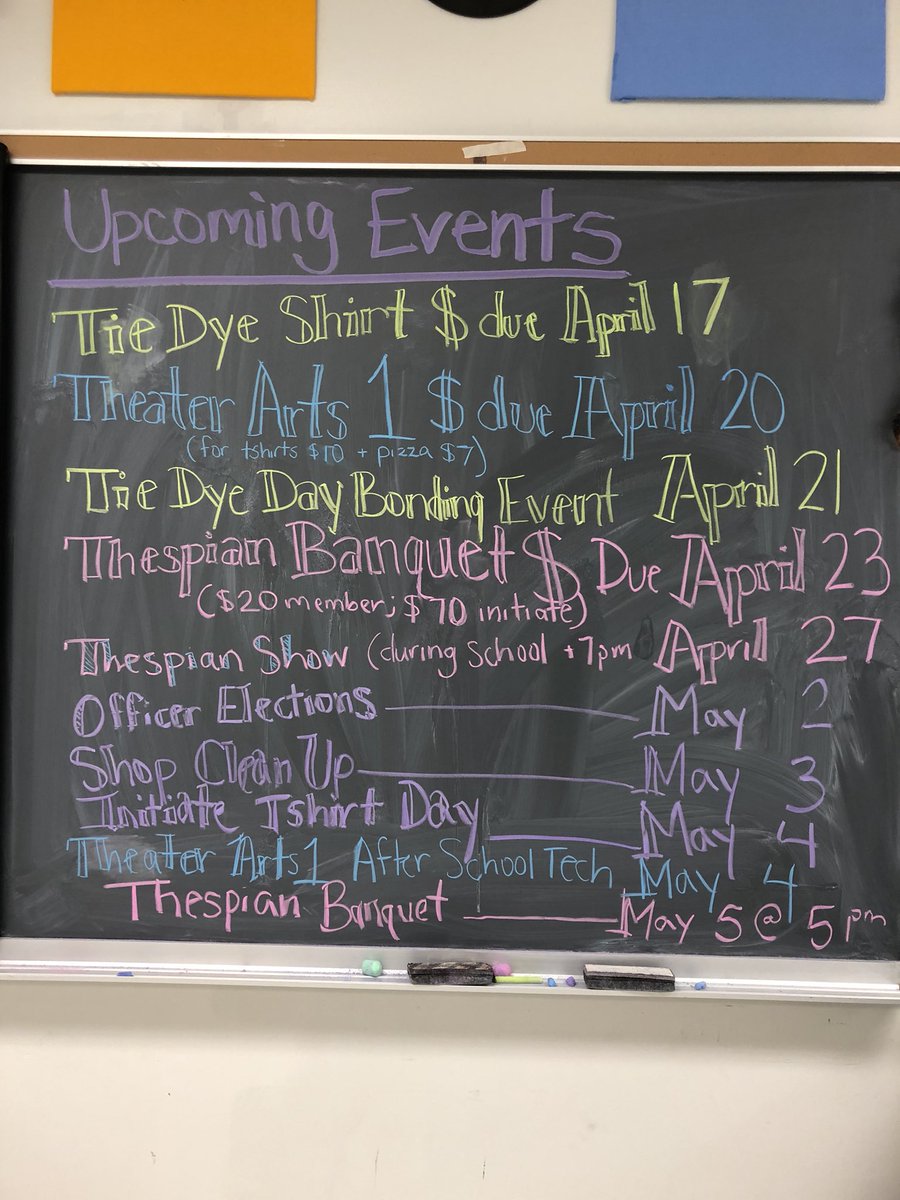 Upcoming Events
Tie Dye Shirt $ due April 17
Theater Arts 1 $ due April 20
(for tshirts $10 + pizza $7)
Tie Dye Day Bonding Event April 21
Thespian Banquet $ Due April 23
($20 member; $70 initiate)
Thespian Show (during School + 7pm April 27
Officer Elections — May 2
Shop Clean Up — May 3
Initiate Tshirt Day — May 4
Theater Arts 1 After School Tech May 4
Thespian Banquet — May 5 @ 5pm